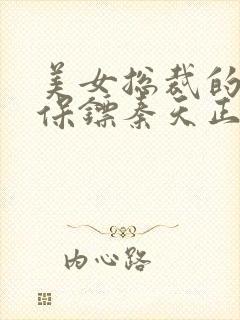 美女总裁的
保镖秦天正
内心路